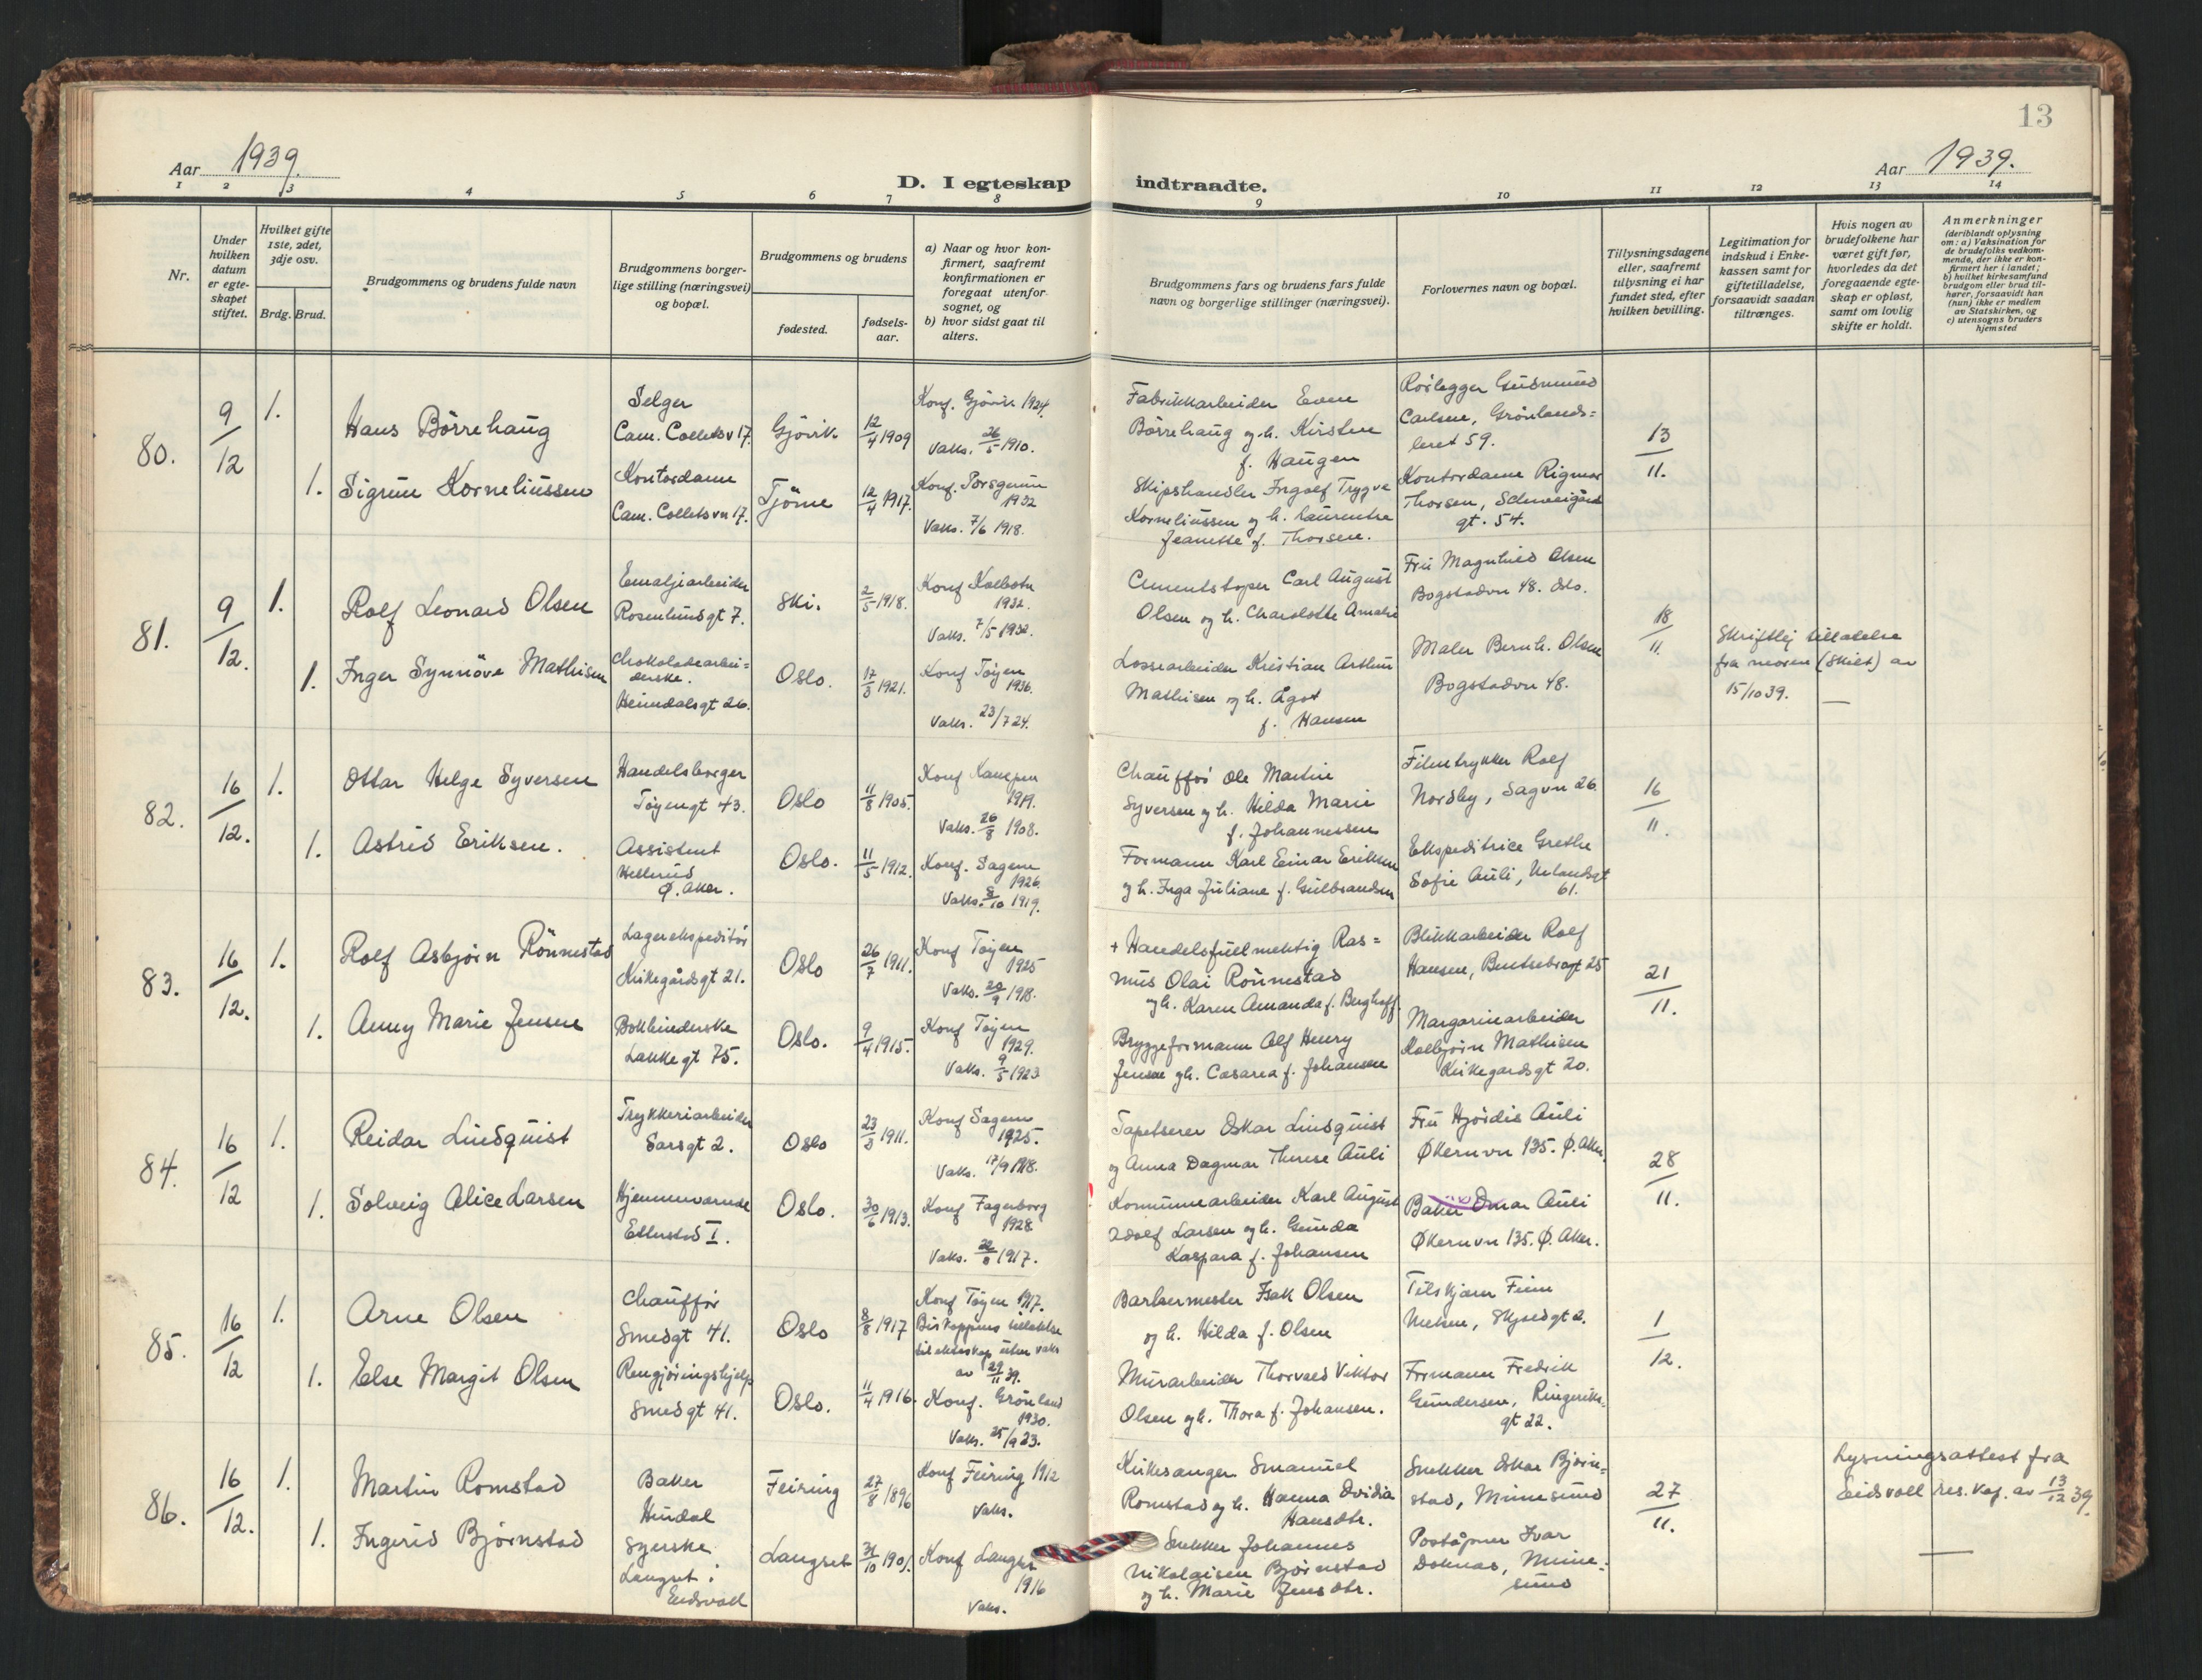 13
Aar 1939.
Aar 1939.
D. I egteskap indtraadte.
1 2 3 4 5 6 7 8 9 10 11 12 13 14
Nr.
Under
hvilken
datum
er egte-
skapet
stiftet.
Hvilket gifte
1ste, 2det,
3dje osv.
Brdg. Brud.
Brudgommens og brudens fulde navn
Brudgommens borger-
lige stilling (næringsvei)
og bopæl.
Brudgommens og brudens
fødested.
fødsels-
aar.
a) Naar og hvor kon-
firmert, saafremt
konfirmationen er
foregaat utenfor
sognet, og
b) hvor sidst gaat til
alters.
Brudgommens fars og brudens fars fulde
navn og borgerlige stillinger (næringsvei).
Forlovernes navn og bopæl.
Tillysningsdagene
eller, saafremt
tillysning ei har
fundet sted, efter
hvilken bevilling.
Legitimation for
indskud i Enke-
kassen samt for
giftetilladelse,
forsaavidt saadan
tiltrænges.
Hvis nogen av
brudefolkene har
været gift før,
hvorledes da det
foregaaende egte-
skap er opløst,
samt om lovlig
skifte er holdt.
Anmerkninger
(deriblandt oplysning
om: a) Vaksination for
de brudefolks vedkom-
mende, der ikke er kon-
firmert her i landet;
b) hvilket kirkesamfund
brudgom eller brud til-
hører, forsaavidt han
(hun) ikke er medlem
av Statskirken, og
c) utensogns bruders
hjemsted
80.
9/12
1.
Hans Börrehaug
Selger
Cam. Colletsv 17.
Gjövik
12/4 1909
Konf. Gjövik 1924.
Vaks. 26/5 1910.
Fabrikkarbeider Even
Börrehaug og h. Kirsten
f. Haugen
Rörlegger Gudmund
Carlsen, Grönlands=
leret 59.
13/11.
1.
Sigrun Korneliussen
Kontordame
Cam. Colletsvn 17.
Tjöme
12/4 1917.
Konf. Porsgrunn
1932
Vaks. 7/6 1918.
Skipshandler Ingolf Trygve
Korneliussen og h. Laurentse
Jeanette f. Thorsen.
Kontordame Rigmor
Thorsen, Schweigårds
gt. 54.
81.
9/12.
1.
Rolf Leonard Olsen
Emaljearbeider
Rosenlundsgt 7.
Ski.
2/5 1918.
Konf Kolbotn
1932.
Vaks. 7/5 1932.
Cementstøper Carl August
Olsen og h. Charolotte Amalie
Fru Magnhild Olsen
Bogstadvn 48. Oslo.
18/11.
Skriftlig tillatelse
fra moren (skilt) av
15/10 39.
1.
Inger Synnöve Mathisen
Chokoladearbei=
derske.
Heimdalsgt 26.
Oslo.
17/3 1921.
Konf Tøyen
1936.
Vaks. 23/7 24.
Lossearbeider Kristian Arthur
Mathisen og h. Ågot
f. Hansen
Maler Bernh. Olsen
Bogstadvn 48.
82.
16/12.
1.
Ottar Helge Syversen
Handelsborger
Tøyengt 43.
Oslo
11/8 1905.
Konf Kampen
1919.
Vaks. 26/8 1908.
Chauffør Ole Martin
Syversen og h. Hilda Marie
f. Johannessen
Filmtrykker Rolf
Nordby, Sagvn 26.
16/11.
1.
Astrid Eriksen.
Assistent
Hellerud
Ø. Aker.
Oslo.
11/5 1912.
Konf. Sagene
1926.
Vaks. 8/10 1919.
Formann Karl Einar Eriksen
og h. Inga Juliane f. Gulbrandsen
Ekspeditrice Grethe
Sofie Auli, Uelandsgt
61.
83.
16/12.
1.
Rolf Asbjørn Rönnestad
Lagerekspeditör
Kirkegårdsgt 21.
Oslo
26/7 1911.
Konf Tøyen
1925
Vaks. 20/9 1918.
+ Handelsfullmektig Ras=
mus Olai Rönnestad
og h. Karen Amanda f. Berghoff
Blikkarbeider Rolf
Hansen, Bentsebrogt 25
21/11.
1.
Anny Marie Jensen
Bokbinderske
Lakkegt 75.
Oslo.
9/4 1915.
Konf Tøyen
1929.
Vaks. 9/5 1923
Bryggeformann Alf Henry
Jensen og h. Cæsarea f. Johansen
Margarinarbeider
Kolbjørn Mathisen
Kirkegårdsgt 20.
84.
16/12
1.
Reidar Lindquist
Trykkeriarbeider
Sarsgt 2.
Oslo
23/3 1911.
Konf Sagene
1925.
Vaks. 17/9 1918.
Tapetserer Oskar Lindquist
og Anna Dagmar Therese Auli
Fru Hjördis Auli
Økernvn 135. Ø. Aker.
28/11.
1.
Solveig Alice Larsen
Hjemmeværende
Etterstad I.
Oslo.
30/6 1913.
Konf Fagerborg
1928.
Vaks. 22/8 1917.
Kommunearbeider Karl August
Adolf Larsen og h. Gunda
Kaspara f. Johansen
Baker Omar Auli
Økernvn 135. Ø. Aker.
85.
16/12
1.
Arne Olsen
Chauffør
Smedgt 41.
Oslo
8/8 1917
Konf Tøyen 1917.
Biskoppens tillatelse
til ekteskap uten vaks
av 29/11 39.
Barbermester Isak Olsen
og h. Hilda f. Olsen
Tilskjærer Finn
Nielsen, Skjoldgt 2.
1/12.
1.
Else Margit Olsen
Rengjøringshjelp
Smedgt 41.
Oslo.
11/4 1916.
Konf. Grönland
1930.
Vaks. 25/9 23.
Murarbeider Thorvald Viktor
Olsen og h. Thora f. Johansen.
Formann Fredrik
Gundersen, Ringeriks
gt 22.
86.
16/12.
1.
Martin Romstad
Baker
Hurdal
Feiring
27/8 1896
Konf Feiring 1912
Vaks.
Kirkesanger Emanuel
Romstad og h. Hanna Ovidia
Hansdtr.
Snekker Oskar Björn=
stad, Minnesund
27/11.
Lysningsattest fra
Eidsvoll res. kap. av 13/12 39.
1.
Ingerid Bjørnstad
Syerske
Langset i
Eidsvoll
Langset
31/10 1901.
Konf Langset
1916
Vaks.
Snekker Johannes
Nikolaisen Bjørnstad
og h. Marie Jensdtr.
Poståpner Ivar
Doknæs, Minne=
sund